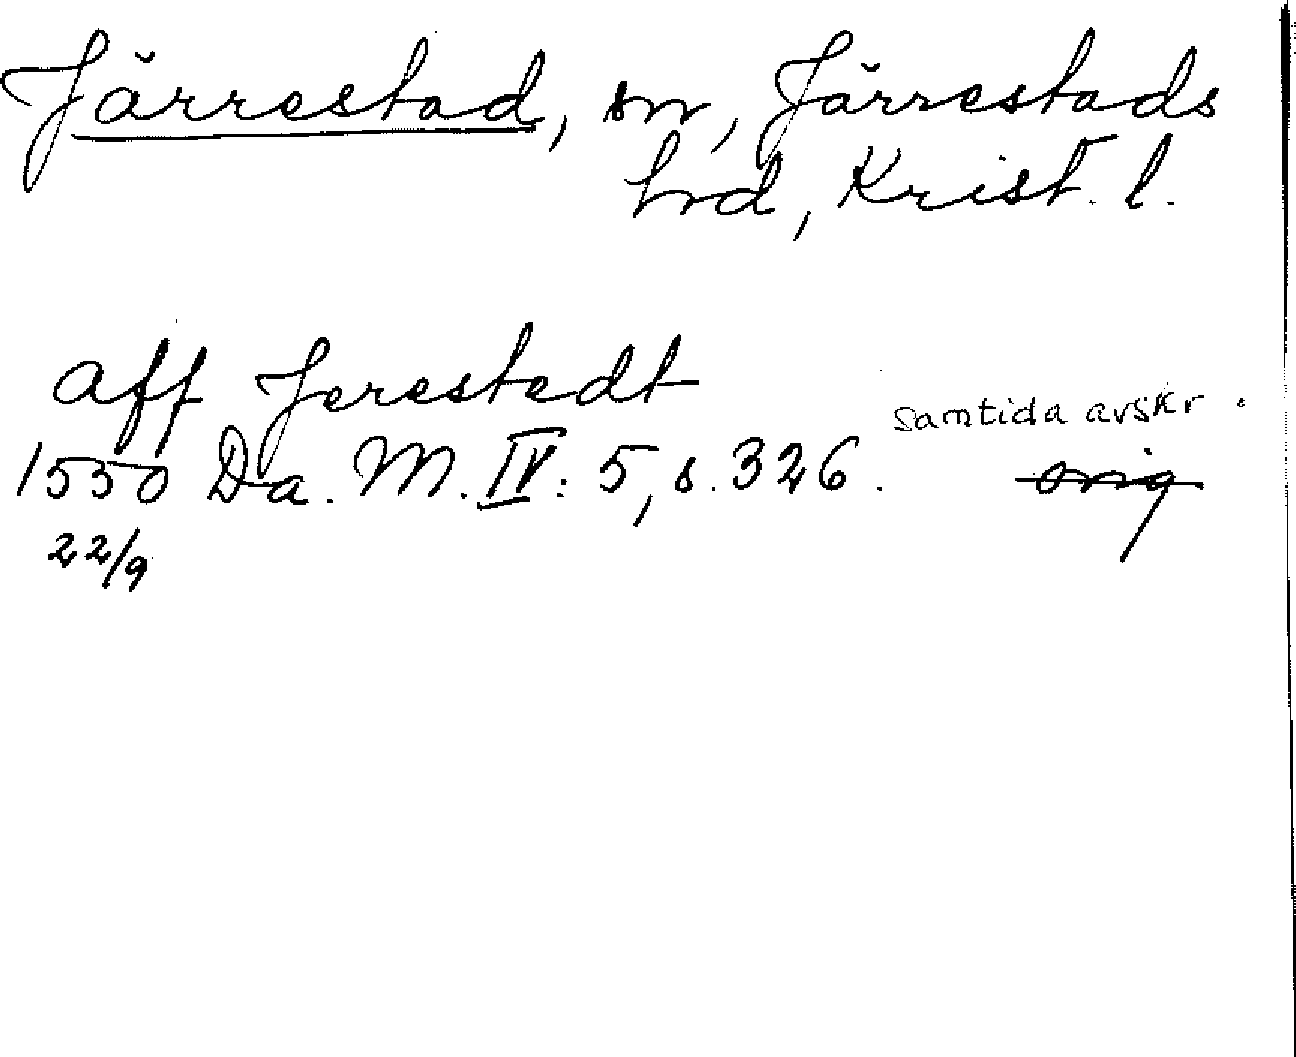 Järrestad, sn, Järrestads
hrd, Krist. l.
aff Jerestedt
samtida avskr.
1550 Da. M. IV: 5, s. 326. orig
22/9